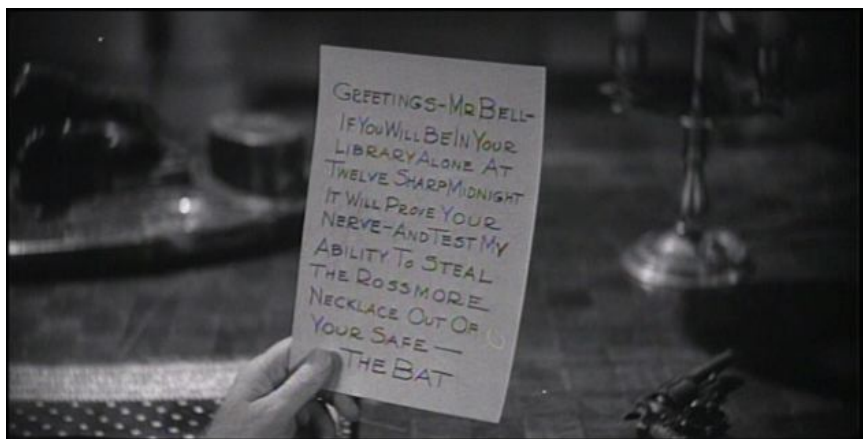 GREETINGS-MR BELL-
IF YOU WILL BE IN YOUR
LIBRARY ALONE AT
TWELVE SHARP MIDNIGHT
IT WILL PROVE YOUR
NERVE-AND TEST MY
ABILITY TO STEAL
THE ROSSMORE
NECKLACE OUT OF
YOUR SAFE —
-THE BAT